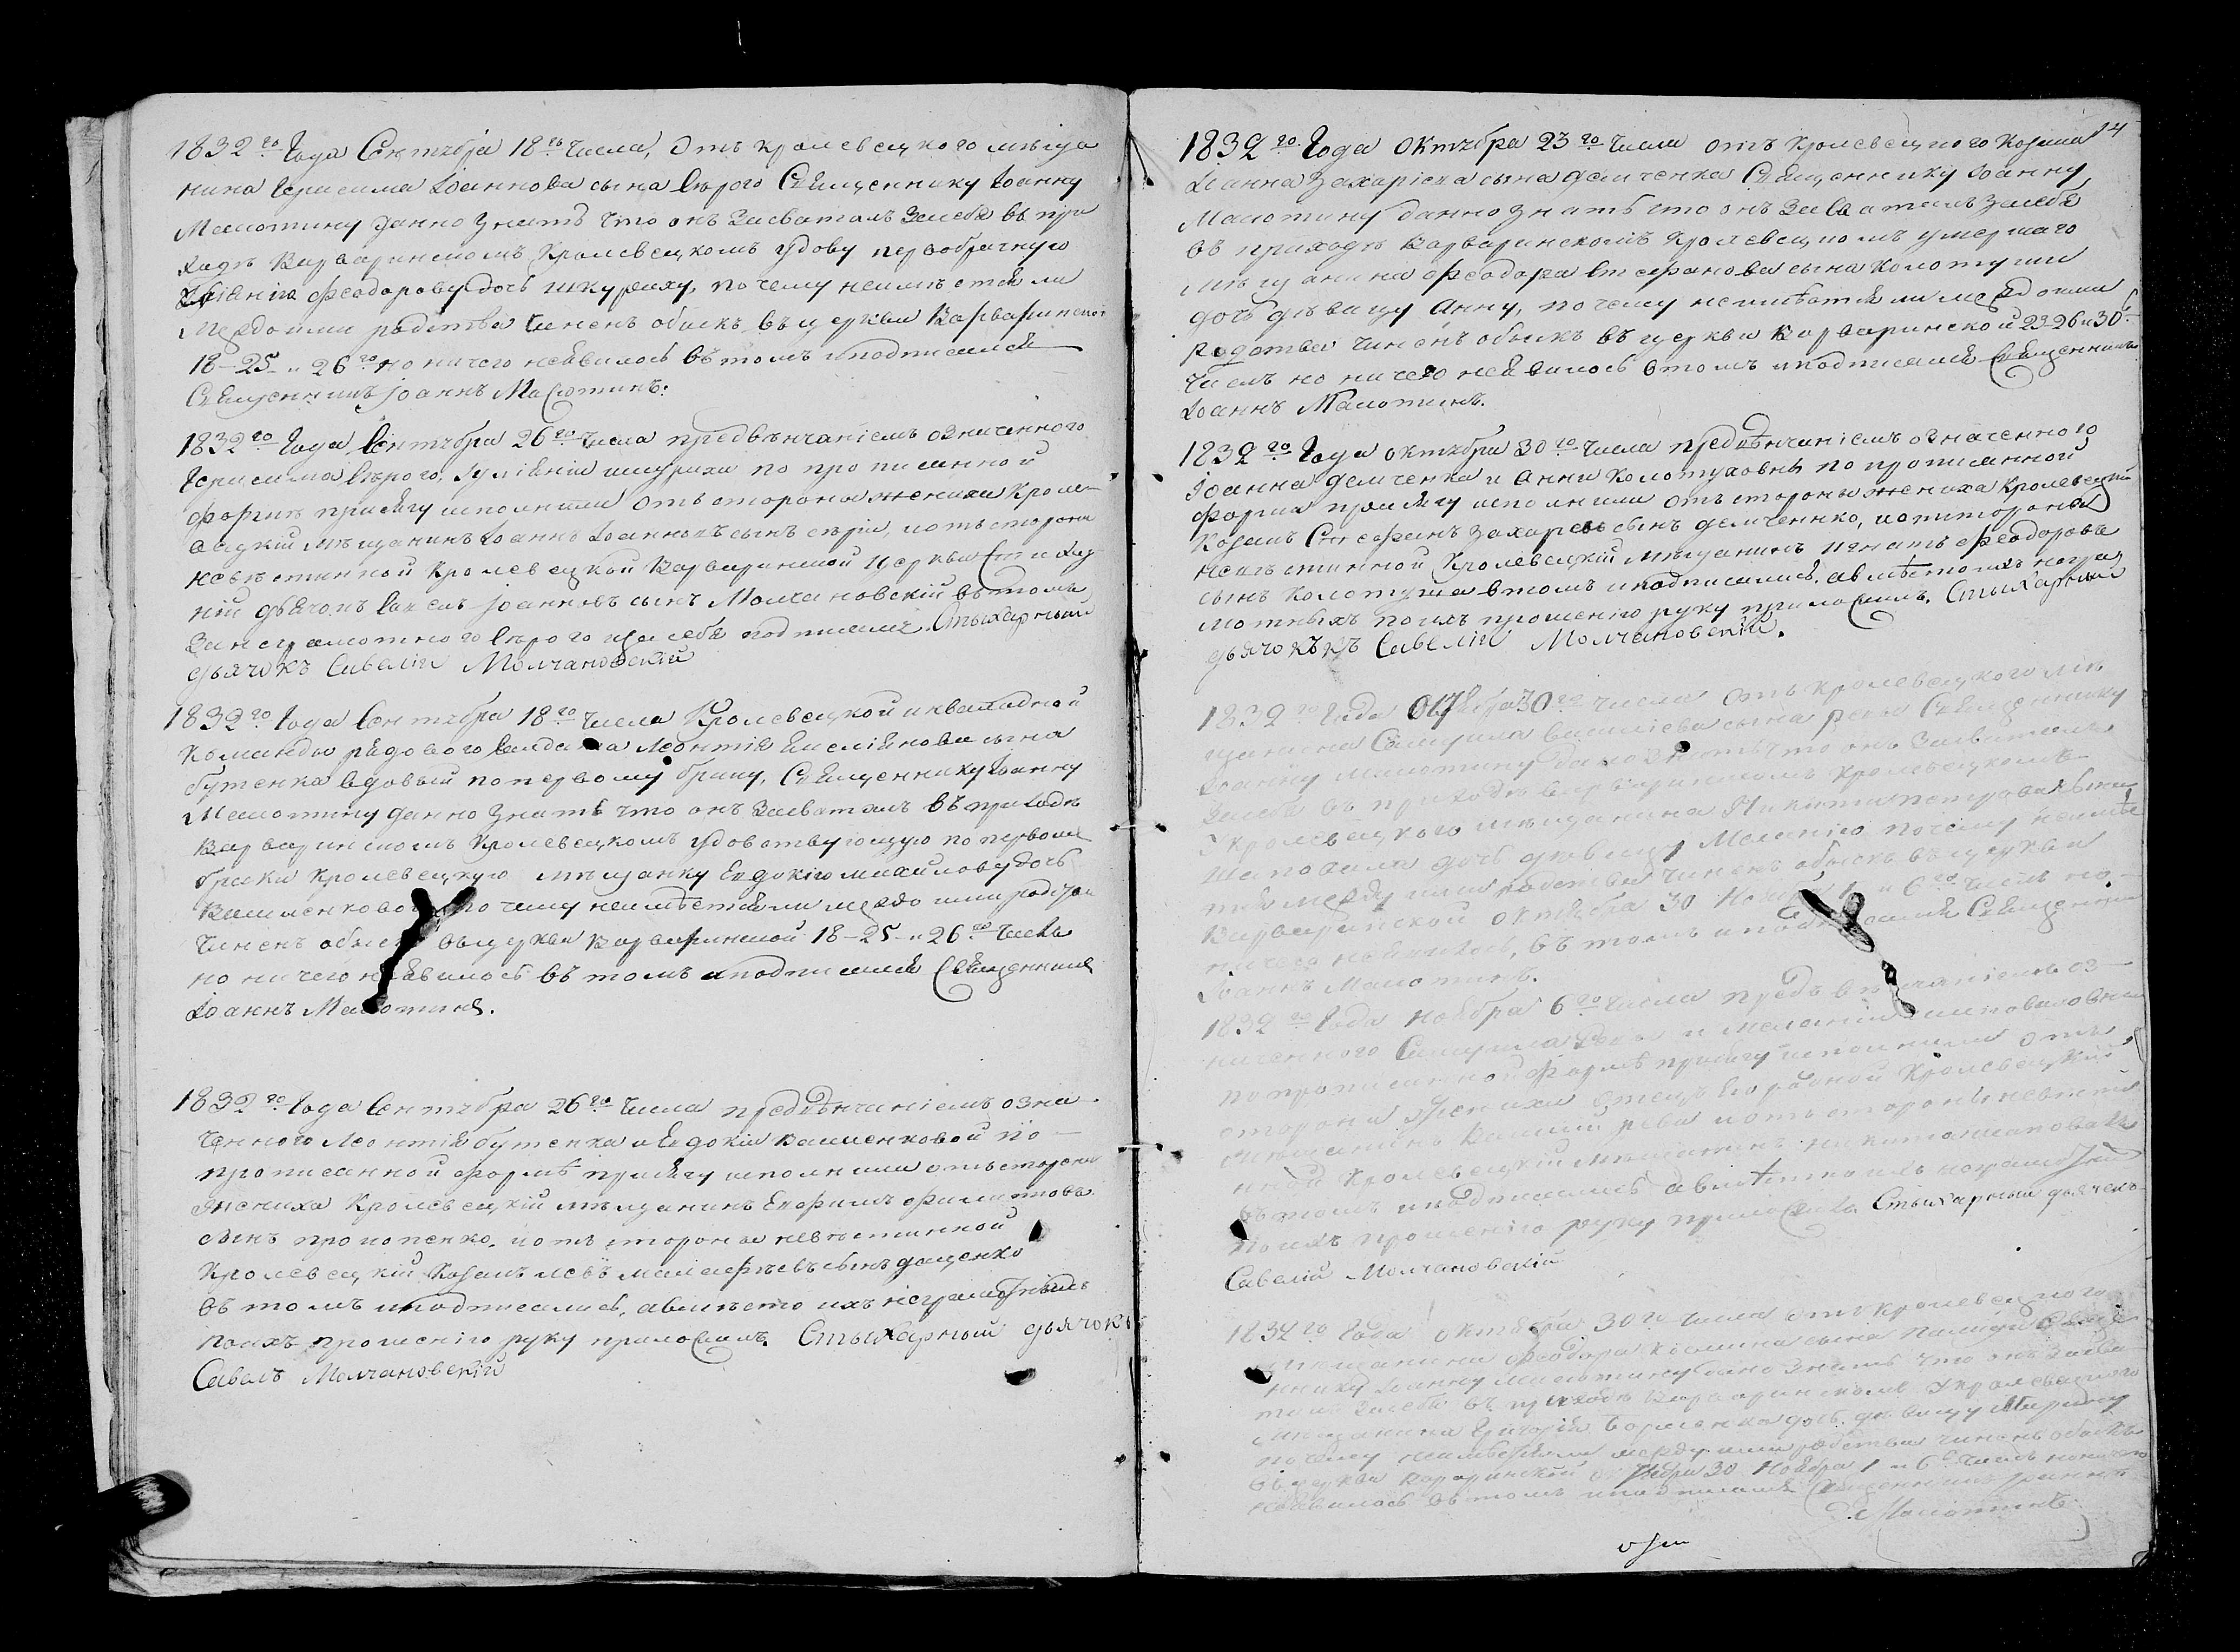 1832го Года Сентября 18го Числа, Отъ кролевецкого мѣща
нина Герасима Іоаннова сына Сѣрого Священнику Іоанну
Масютину данно знать что онъ Засваталъ Засебя въ при
ходѣ Варваринскомъ Кролевецкомъ удову первобрачную
Феодорову дочь шкуриху, почему неимѣетсяли
Междоими родства Чиненъ обыскъ въ церкви Варваринской
18-25-и 26го но ничего неявилось въ томъ иподписался
Священникъ Іоаннъ Масютинъ:
1832го Года Сентября 26го Числа предвѣнчаніемъ означенного
Герасима Сѣрого, Іуліяніи шкурихи по прописанной
формѣ присягу исполнили Отъ стороны жениха Кроле-
вецкій мѣщанинъ Іоаннъ Іоанновъ сынъ сѣрій, иотъ стороны
невѣстинной Кролевецкой Варваринской Церкви Стихар
ній дьячокъ Іоанновъ сынъ Молчановскій въ томъ
Занеграмотного Сѣрого изасебя подписалъ Стыхарный
дьячокъ Савелій Молчановскій
1832го Года Сентября 18го Числа Кролевецкой инвалидной
Команды рядового Салдата Леонтія Емеліянова сына
бутенка вдовый попервому браку, Священнику Іоанну
Масютину данно знать что онъ Засваталъ въ приходѣ
Варваринскомъ Кролевецкомъ удовствующую попервомъ
браки Кролевецкую мѣщанку Евдокію михайлову дочь
почему неимѣетсяли междо ими родства
Чиненъ обыскъ въ церкви Варваринской 18-25-и 26го Числъ
но ничего неявилось въ томъ иподписался Священникъ
Іоаннъ Масютинъ.
1832го Года Сентября 26го Числа предвѣнчаніемъ озна-
ченного Леонтія бутенка и Евдокіи Василенковой по-
прописанной формѣ присягу исполнили отъ стороны
жениха Кролевецкій мѣщанинъ Евфимъ Филиповъ
сынъ прокопенко, иотъ стороны невѣстинной
Кролевецкій Козакъ Левъ сынъ даценко
въ томъ иподписались, авмѣсто ихъ неграмотныхъ
поихъ прошенію руку приложилъ. Стыхарный дьячокъ
Савелъ Молчановскій
14
1832го Года Октября 23го Числа отъ Кролевецкого Козака
Іоанна Захаріева сына демченка Священнику Іоанну
Масютину данно знать что онъ Засваталъ Засебя
въ приходѣ Варваринскомъ Кролевецкомъ умершаго
мѣщанина Феодора Стефанова сына Колотуши
дочь дѣвицу Анну, почему неимѣетсяли междоими
родства чиненъ обыскъ въ церкви Варваринской 23-26 и 30го
Числъ но ничего неявилось втомъ иподписался Священникъ
Іоаннъ Масютинъ.
1832го Года октября 30го Числа предвѣнчаніемъ означенного
Іоанна демченка и Анни Колотуховны по прописанной
формѣ присягу исполнили отъ стороны жениха Кролевецкій
Козакъ Стефанъ Захаріевъ сынъ демченко, иотъстороны
невѣстинной Кролевецкій мѣщанинъ Игнатъ Феодоровъ
сынъ Колотуша втомъ иподписались, авмѣсто ихъ негра
мотныхъ поихъ прошенію руку приложилъ. Стыхарный
дьячокъ Савелій Молчановскій.
1832го Года Октября 30го числа Отъ кролевецкого мѣ
щанина Самуила Василіева сына Священнику
Іоанну Масютину данно знать что онъ Засваталъ
Засебя въ приходѣ Варваринскомъ Кролевецкомъ
Укролевецкого мѣщанина Никити петрова сына
Шаповала дочь дѣвицу Меланію почему неимѣе
тсяли между ими родства Чиненъ обыскъ въ церкви
Варваринской октября 30 Ноября 1 и 6го числъ но-
ничего неявилось, въ томъ иподписался Священникъ
Іоаннъ Масютинъ.
1832го Года Ноября 6го Числа предъ вѣнчаніемъ оз-
наченного Самуила и Меланіи Шаповаловны
по прописанной формѣ присягу исполнили отъ
стороны Жениха отецъ Его родной Кролевецкій
мѣщанинъ Василій иотъ стороны невѣсти
нной Кролевецкій мѣщанинъ Никита шаповалъ
въ томъ иподписались авмѣсто ихъ неграмотныхъ
поихъ прошенію руку приложилъ Стыхарный дьячокъ
Савелій Молчановскій
1832го Года октября 30го числа отъ Кролевецкого
мѣщанина Феодора сына Свяще
ннику Іоанну Масютину данно знать что онъ Засва-
талъ Засебя въ приходѣ Варваринскомъ Укролевецкого
мѣщанина Григорія дочь дѣвицу
почему неимѣетсяли между ими родства чиненъ обыскъ
въ церкви Варваринской октября 30 Ноября 1 и 6го Числъ ничего
неявилось въ томъ иподписался Священникъ Іоаннъ
Масютинъ